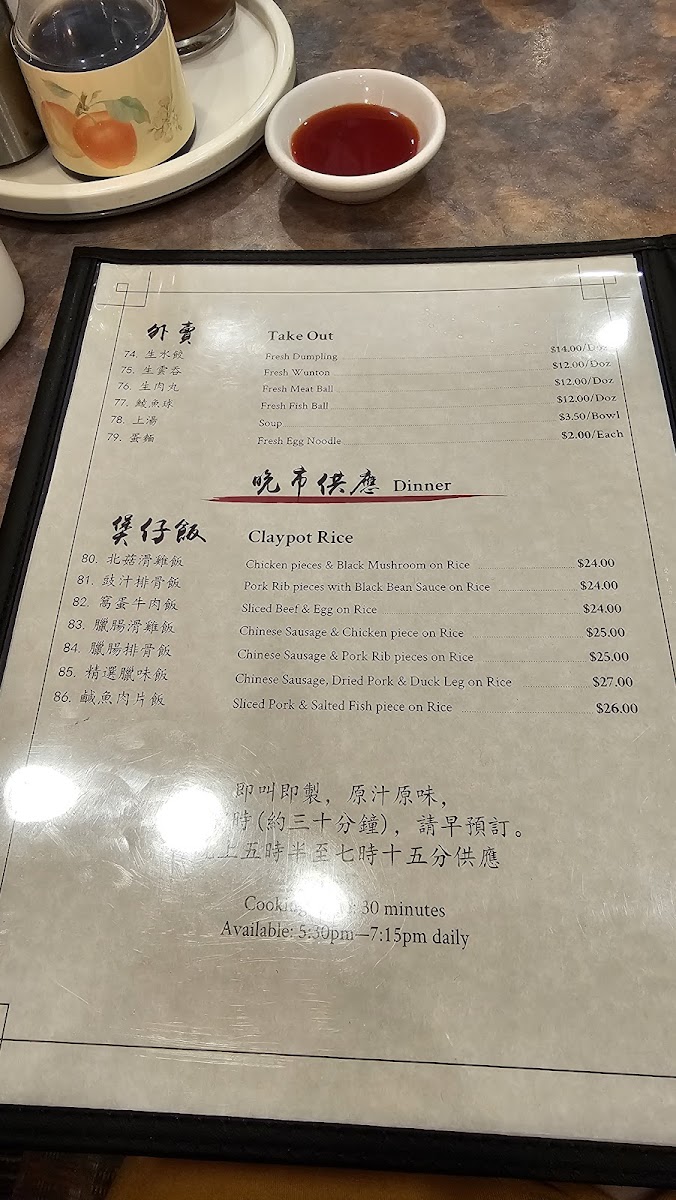 外賣 Take Out
74. 生水餃 Fresh Dumpling $14.00/Doz
75. 生雲吞 Fresh Wunton $12.00/Doz
76. 生肉丸 Fresh Meat Ball $12.00/Doz
77. 鯪魚球 Fresh Fish Ball $12.00/Doz
78. 上湯 Soup $3.50/Bowl
79. 蛋麵 Fresh Egg Noodle $2.00/Each
晚市供應 Dinner
煲仔飯 Claypot Rice
80. 北菇滑雞飯 Chicken pieces & Black Mushroom on Rice $24.00
81. 豉汁排骨飯 Pork Rib pieces with Black Bean Sauce on Rice $24.00
82. 窩蛋牛肉飯 Sliced Beef & Egg on Rice $24.00
83. 臘腸滑雞飯 Chinese Sausage & Chicken piece on Rice $25.00
84. 臘腸排骨飯 Chinese Sausage & Pork Rib pieces on Rice $25.00
85. 精選臘味飯 Chinese Sausage, Dried Pork & Duck Leg on Rice $27.00
86. 鹹魚肉片飯 Sliced Pork & Salted Fish piece on Rice $26.00
即叫即製，原汁原味，
時(約三十分鐘)，請早預訂。
上五時半至七時十五分供應
Cooking 30 minutes
Available: 5:30pm—7:15pm daily